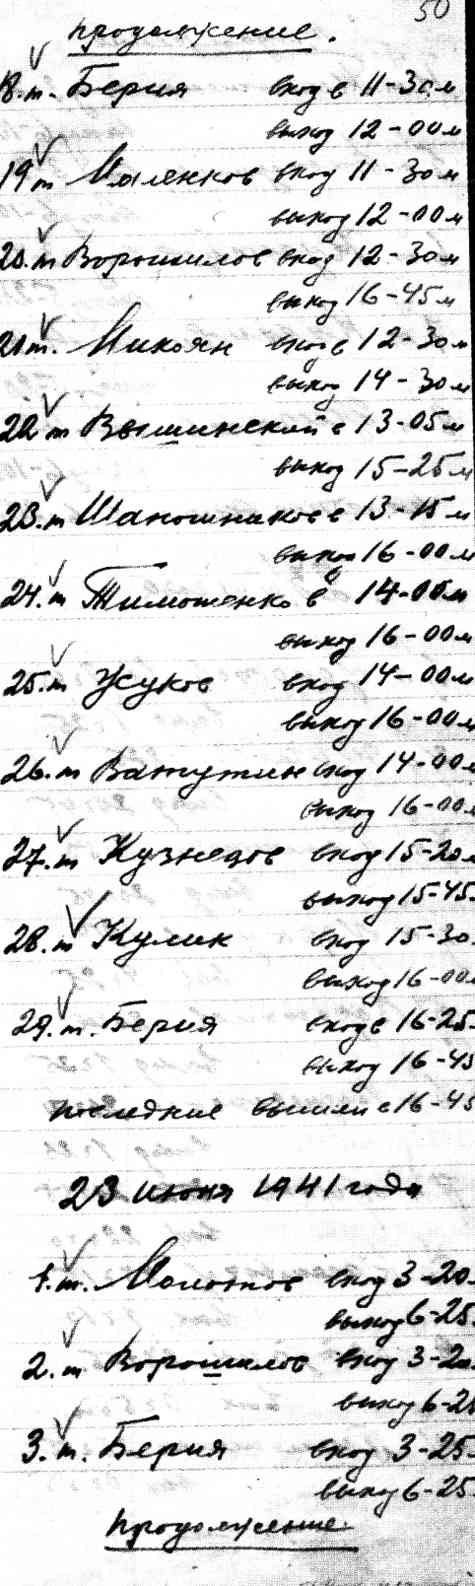 50
продолжение.
18.т. Берия вход в 11-30м
выход 12-00м
19т Маленков вход 11-30м
выход 12-00м
20.т Ворошилов вход 12-30м
выход 16-45м
21т. Микоян вход в 12-30м
выход 14-30м
22 т Вышинский в 13-05м
выход 15-25м
23.т Шапошников в 13-15м
выход 16-00м
24.т Тимошенко в 14-00м
выход 16-00м
25.т Жуков вход 14-00м
выход 16-00м
26.т Ватутин вход 14-00м
выход 16-00м
27.т Кузнецов вход 15-20
выход 15-45
28.т Кулик вход 15-30
выход 16-00
29.т. Берия вход в 16-25
выход 16-45
последние вышли в 16-45
23 июня 1941 года
1.т. Молотов вход 3-20
выход 6-25
2.т Ворошилов вход 3-20
выход 6-25
3.т. Берия вход 3-25
выход 6-25
продолжение